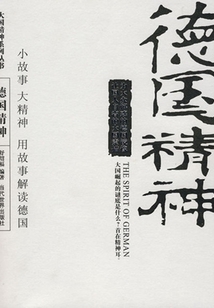 德国精神
THE SPIRIT OF GERMAN
大国崛起的谜底是什么？首在精神耳。
小故事 大精神 用故事解读德国
大国精神系列丛书
德国精神
编著
当代世界出版社